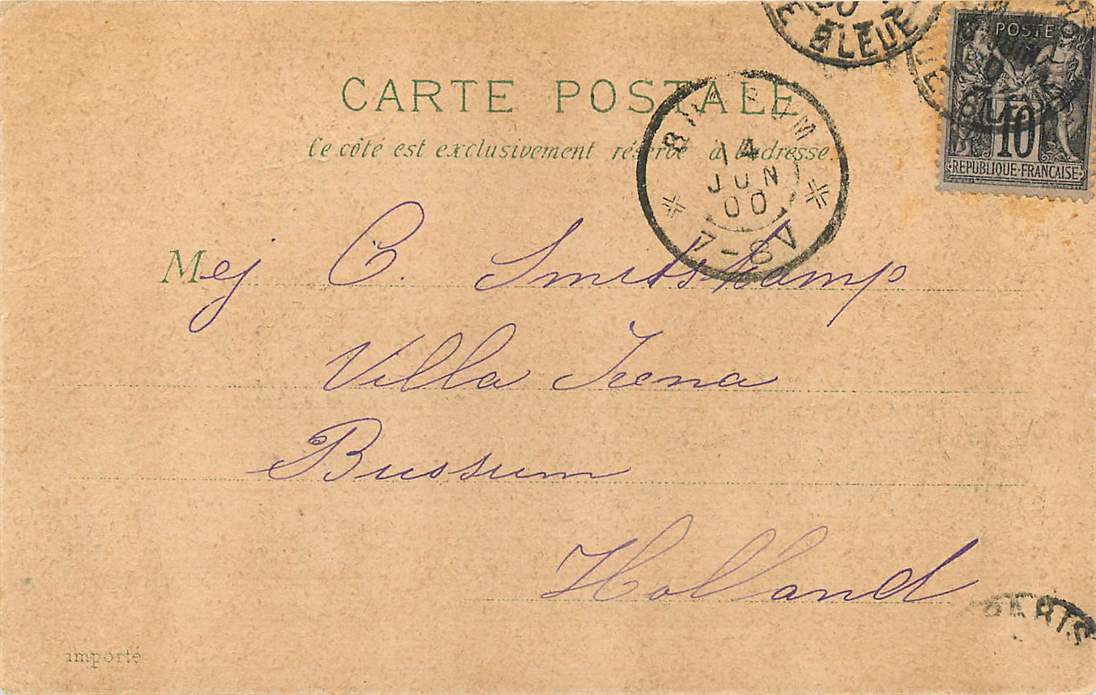 BLEUE
POSTES
10
REPUBLIQUE FRANÇAISE
CARTE POSTALE
Ce côté est exclusivement réservé à l'adresse.
BUSSUM
14
JUN
00
7-8V
Mej C. Smitskamp
Villa Irena
Bussum
Holland
PARIS
importé